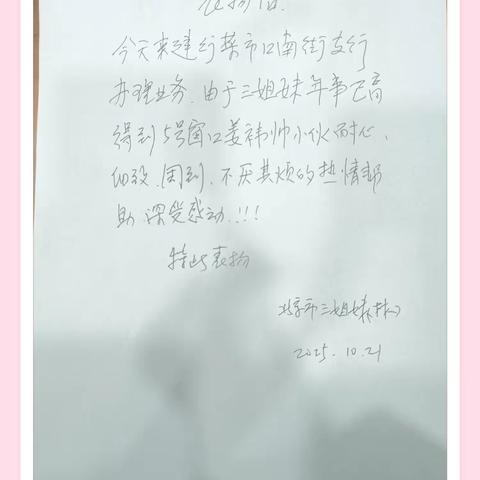 表扬信.
今天来建行菜市口南街支行
办理业务.由于三姐妹年事已高
得到5号窗口姜祎帅小伙耐心、
细致.周到.不厌其烦的热情帮
助.深受感动.!!!
特此表扬
北京市三姐妹
2025.10.21